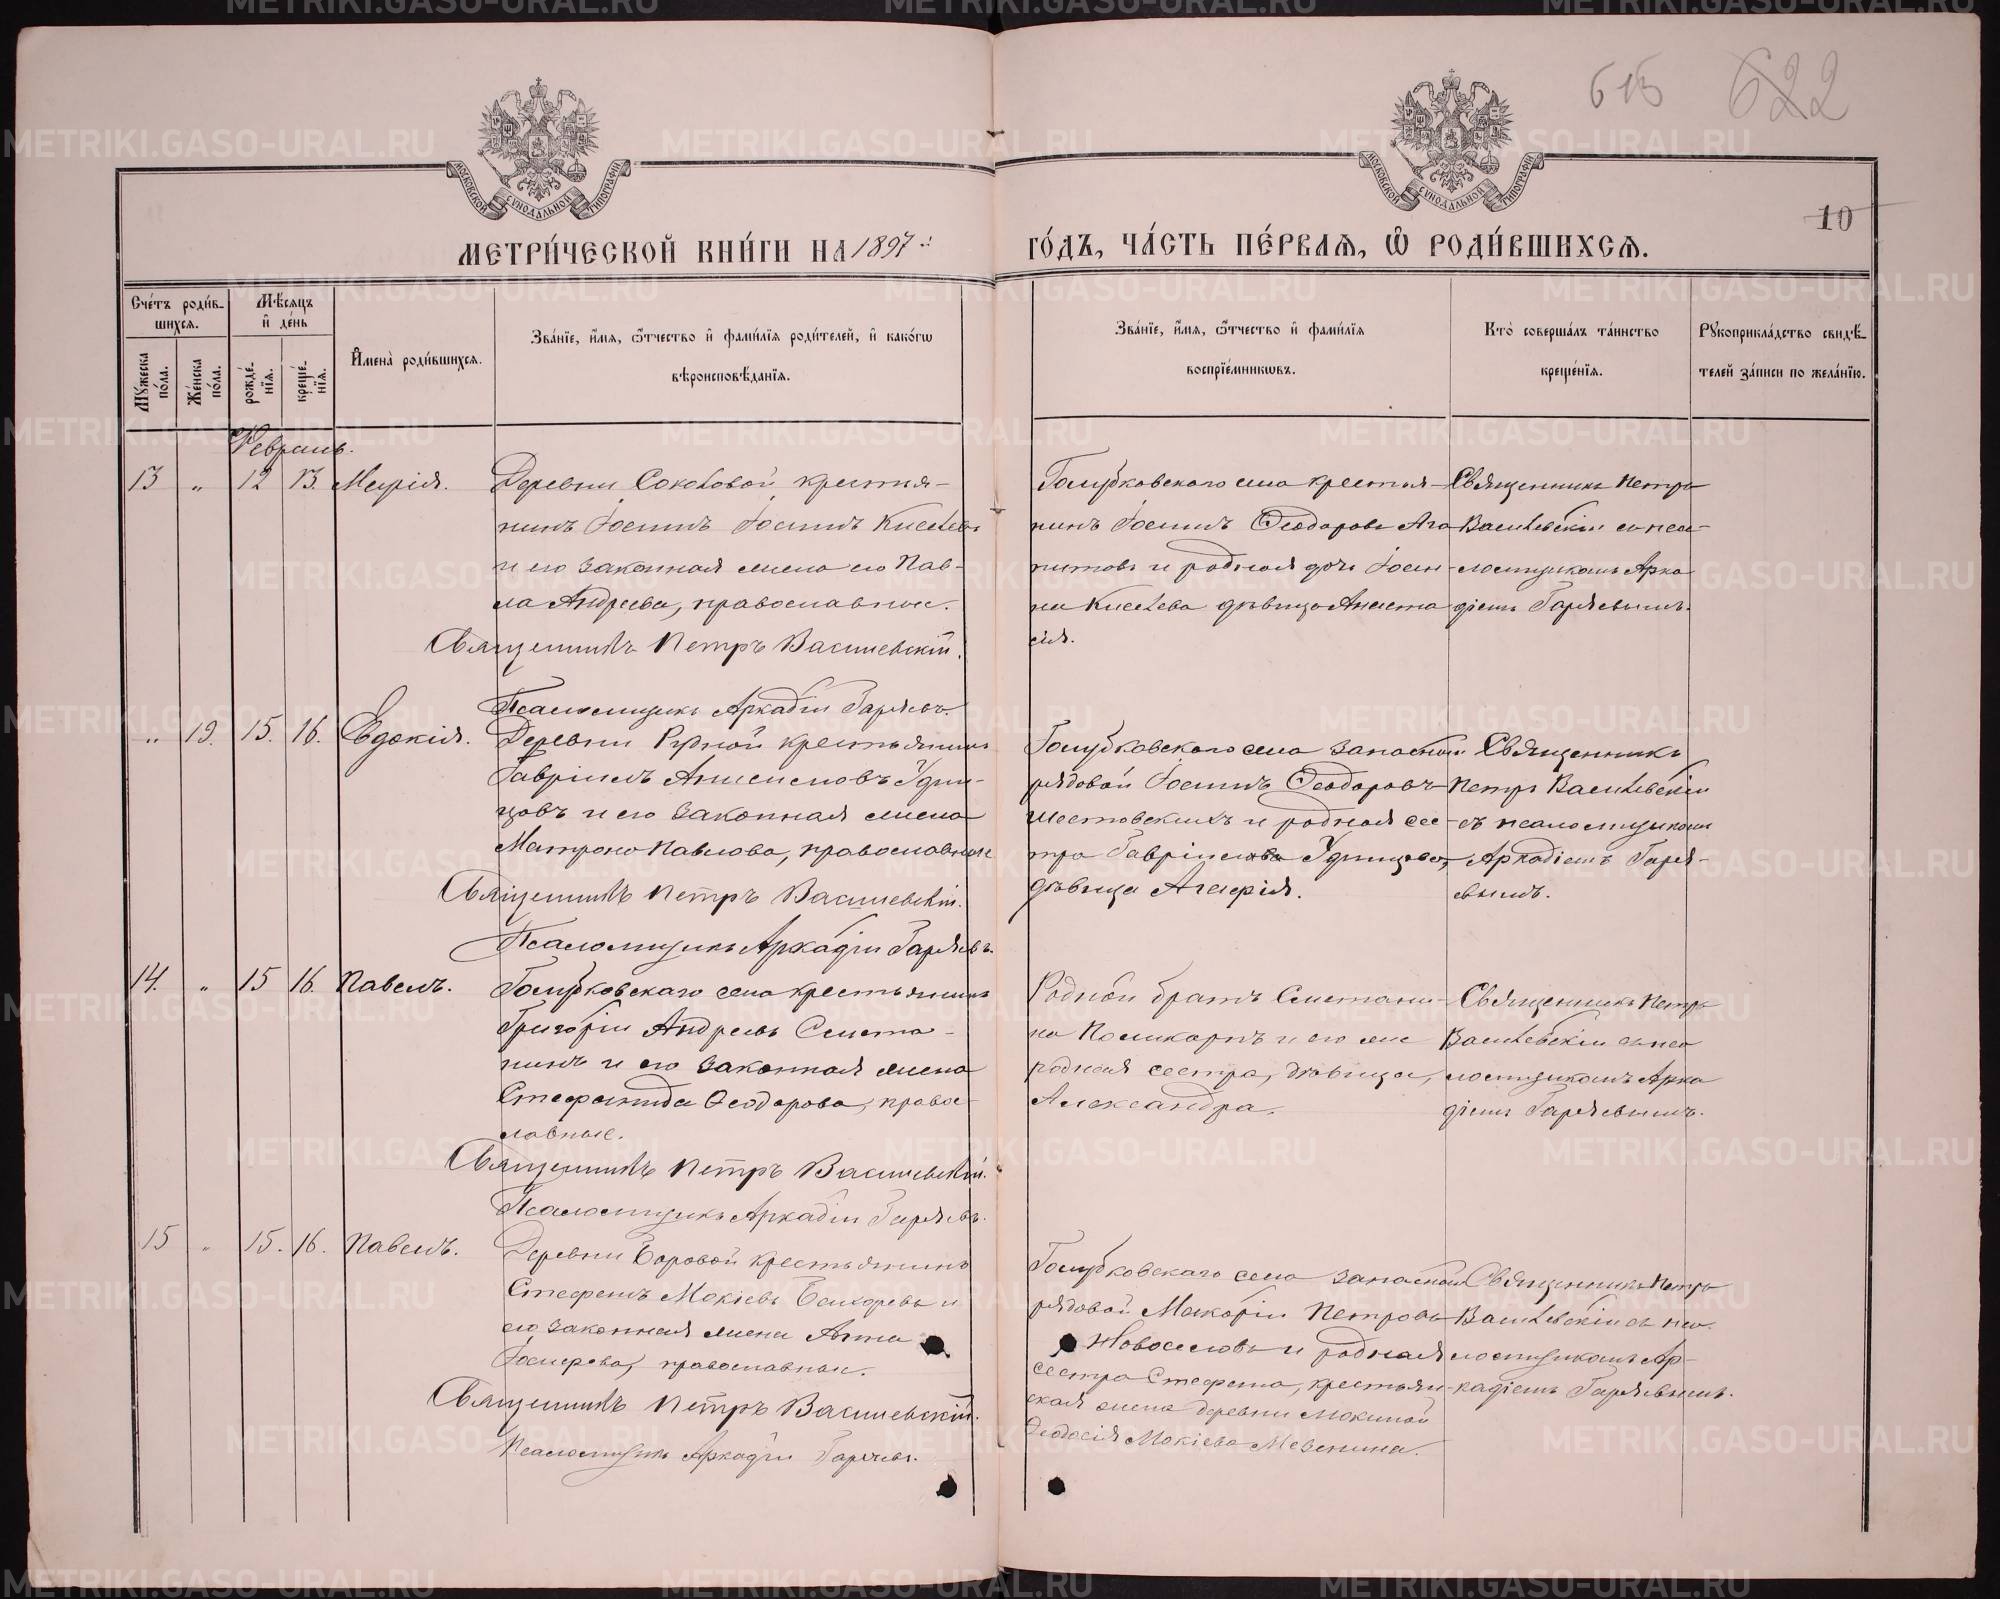 615 622
МОСКОВСКОЙ СѴНОДАЛЬНОЙ ТИПОГРАФІИ
МОСКОВСКОЙ СѴНОДАЛЬНОЙ ТИПОГРАФІИ
10
МЕТРИ́ЧЕСКОЙ КНИ́ГИ НА 1897 ГО́ДЪ, ЧА́СТЬ ПЕ́РВАЯ, Ѡ РОДИ́ВШИХСЯ.
Сче́тъ роди́в-
шихся.
Мѣ́сяцъ
и де́нь
Му́жеска по́ла.
Же́нска по́ла.
рожде́нїя.
креще́нїя.
Имена̀ роди́вшихся.
Зва́нїе, и́мя, ѻ́тчество и фами́лїя роди́телей, и како́гѡ
вѣроисповѣ́данїя.
Зва́нїе, и́мя, ѻ́тчество и фами́лїя
воспрїе́мниковъ.
Кто̀ соверша́лъ та́инство
креще́нїя.
Рукоприкла́дство свидѣ́-
телей за́писи по жела́нїю.
Февраль.
13 „ 12 13. Марія.
Деревни Соколовой крестья-
нинъ Іоаннъ Іоаннъ Киселевъ
и его законная жена его Пав-
ла Андреева, православные.
Священникъ Петръ Василевскій.
Псаломщикъ Аркадій Гаряевъ.
Голубковскаго села крестья-
нинъ Іоаннъ Ѳеодоровъ Ага-
питовъ и родная дочь Іоан-
на Киселева дѣвица Анаста
сія.
Священникъ Петръ
Василевскій съ пса-
ломщикомъ Арка
діемъ Гаряевымъ.
„ 19. 15. 16. Евдокія.
Деревни Рудной крестьянинъ
Гавріилъ Анисимовъ Удин-
цовъ и его законная жена
Матрона Павлова, православные
Священникъ Петръ Василевскій.
Псаломщикъ Аркадій Гаряевъ.
Голубковскаго села запасной
рядовой Іоаннъ Ѳеодоровъ
Шестовскихъ и родная сес-
тра Гавріилова Удинцова,
дѣвица Агафія.
Священникъ
Петръ Василевскій
съ псаломщикомъ
Аркадіемъ Гаря-
евымъ.
14. „ 15 16. Павелъ.
Голубковскаго села крестьянинъ
Григорій Андреевъ Смета-
нинъ и его законная жена
Стефанида Ѳеодорова, право-
славные.
Священникъ Петръ Василевскій.
Псаломщикъ Аркадій Гаряевъ.
Родной братъ Сметани-
на Поликарпъ и его же
родная сестра, дѣвица,
Александра.
Священникъ Петръ
Василевскій съ пса
ломщикомъ Арка
діемъ Гаряевымъ.
15 „ 15. 16. Павелъ.
Деревни Боровой крестьянинъ
Стефанъ Мокіевъ и
его законная жена Анна
православные.
Священникъ Петръ Василевскій.
Псаломщикъ Аркадій Гаряевъ.
Голубковскаго села запасной
рядовой Макарій Петровъ
Новоселовъ и родная
сестра Стефана, крестьян-
ская жена деревни Мокиной
Ѳеодосія Мокіева
Священникъ Петръ
Василевскій съ пса-
ломщикомъ Ар-
кадіемъ Гаряевымъ.